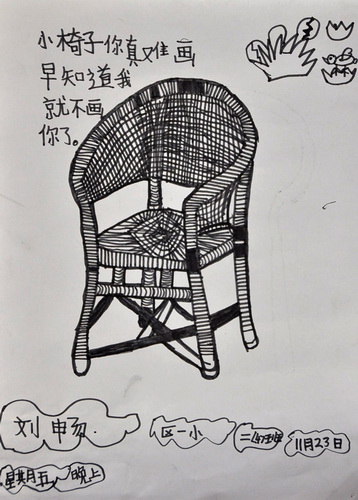 小椅子你真难画
早知道我
就不画
你了。
刘畅.
区一小
二(4)班
11月23日
星期五 晚上